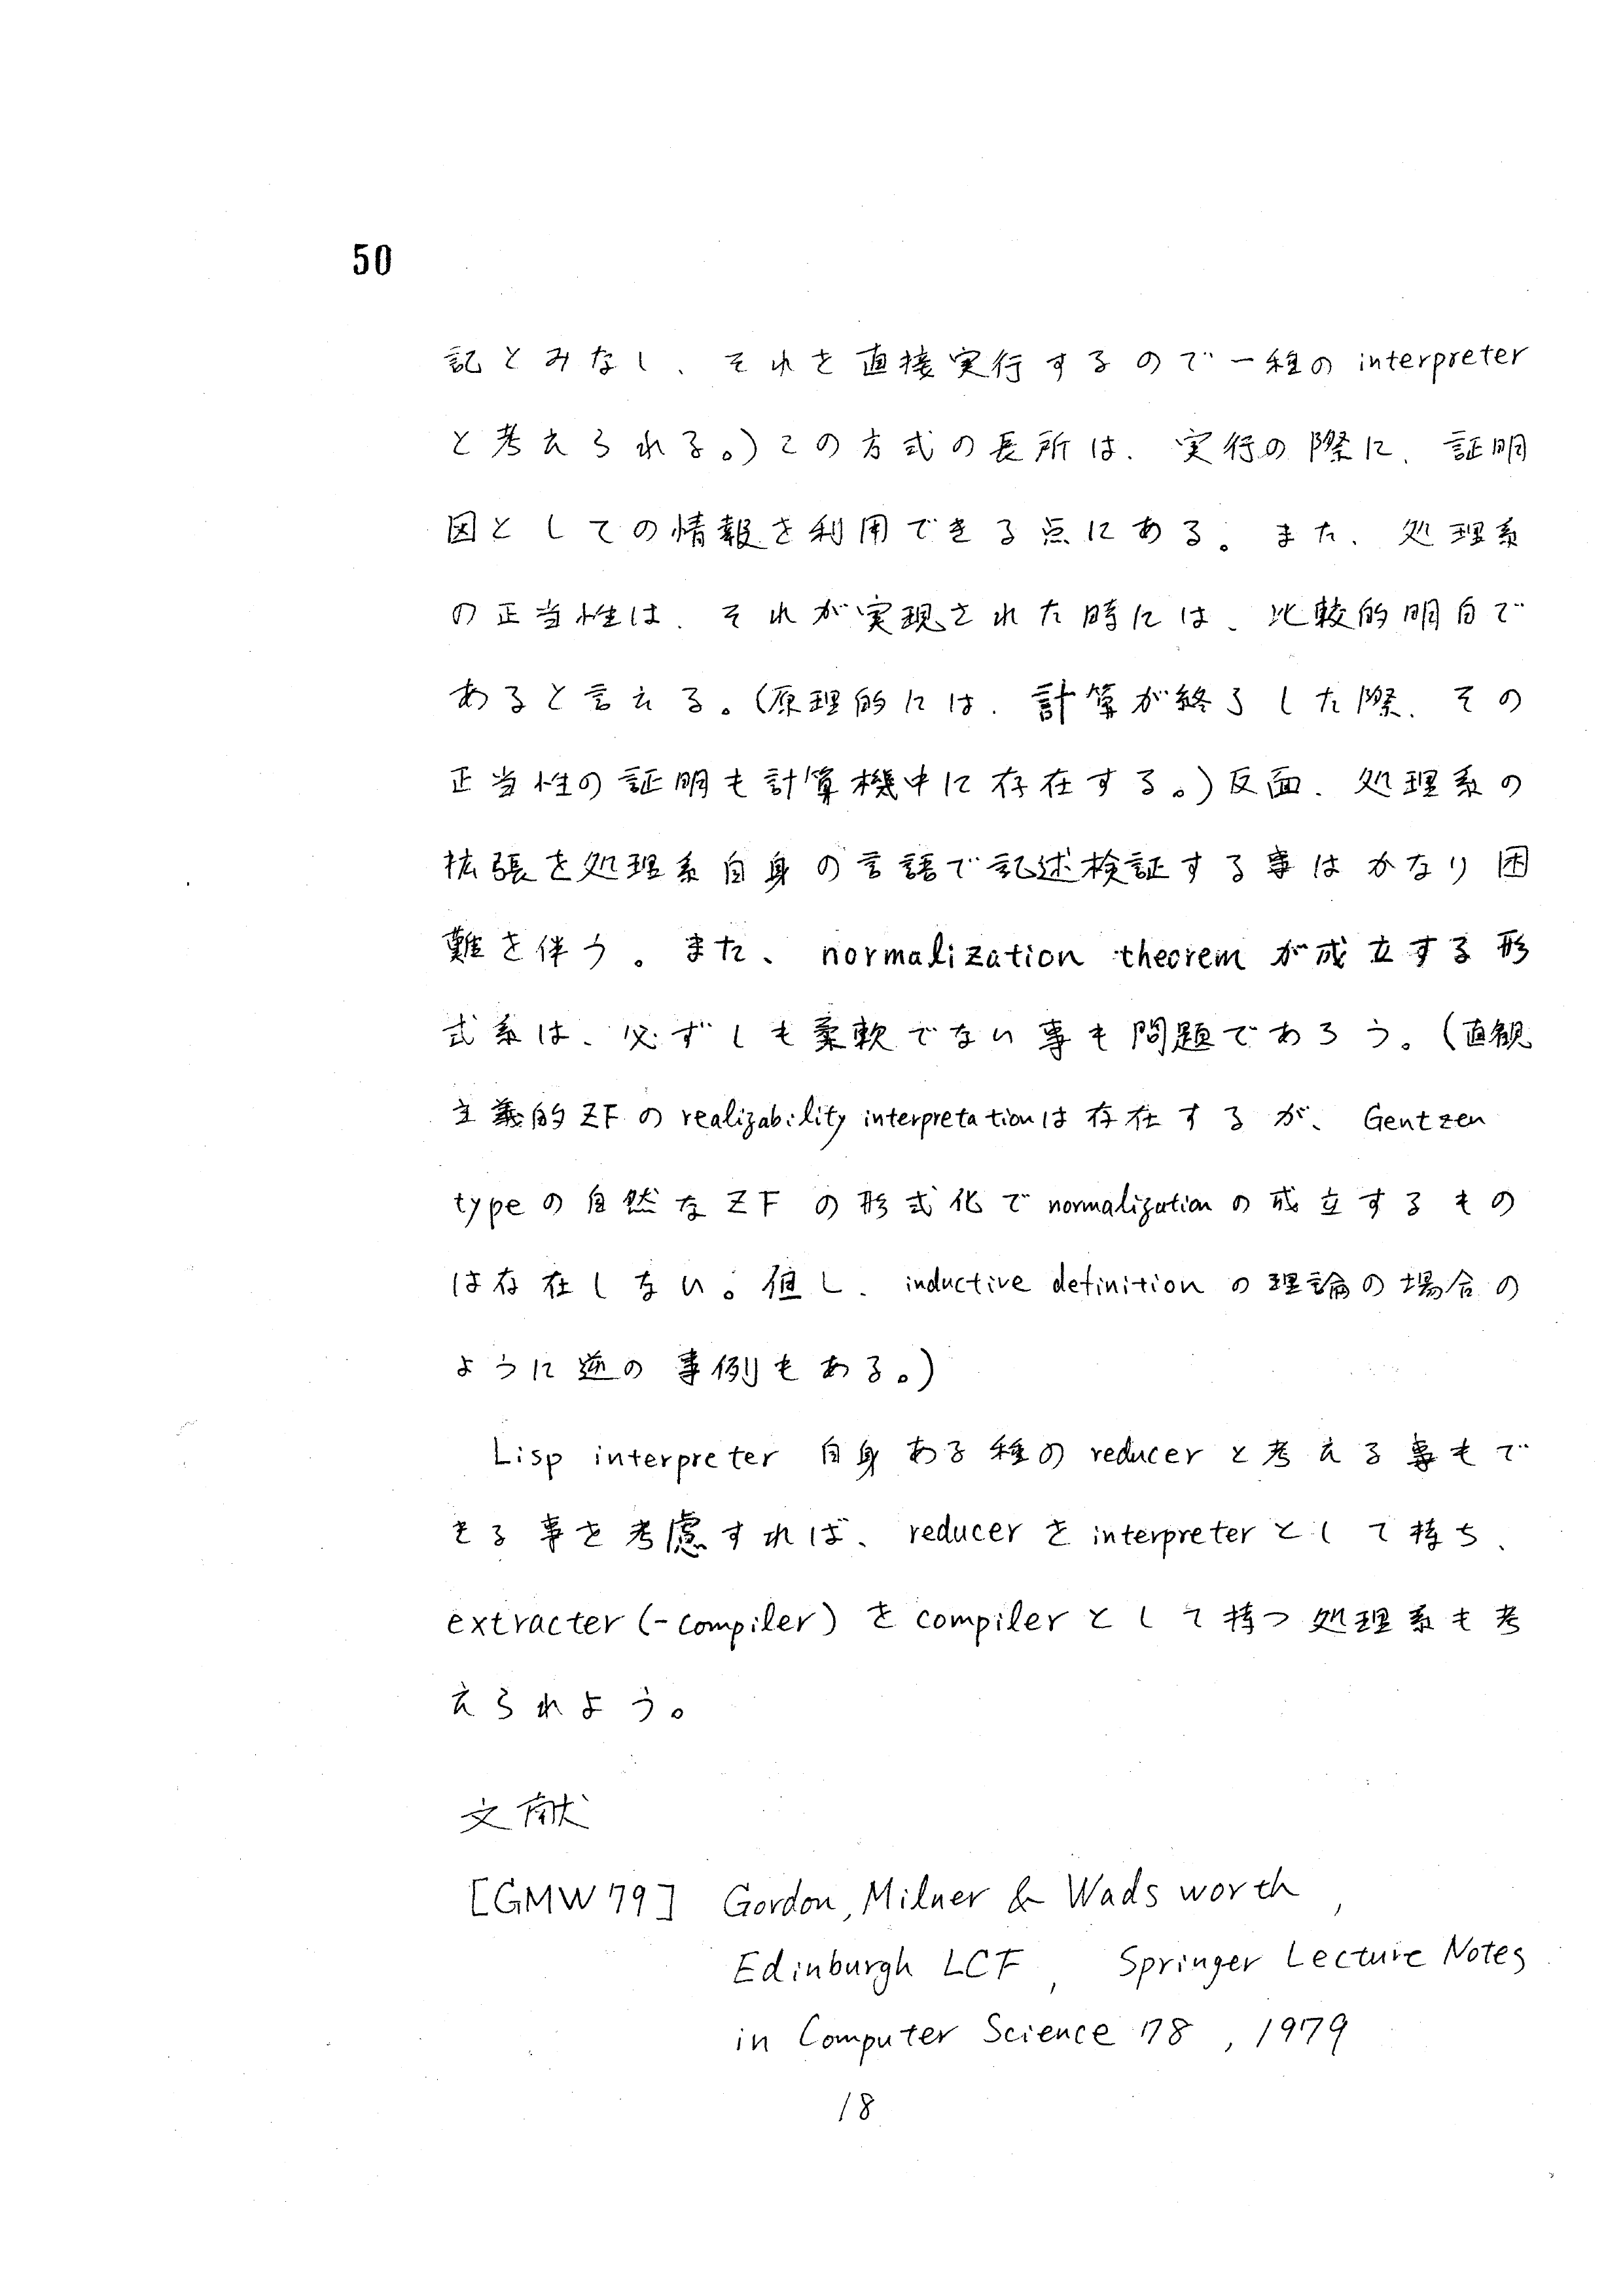 50
記とみなし、それを直接実行するので一種のinterpreter
と考えられる。)この方式の長所は、実行の際に、証明
図としての情報を利用できる点にある。また、処理系
の正当性は、それが実現された時には、比較的明白で
あると言える。(原理的には、計算が終了した際、その
正当性の証明も計算機中に存在する。)反面、処理系の
拡張を処理系自身の言語で記述検証する事はかなり困
難を伴う。また、normalization theoremが成立する形
式系は、必ずしも柔軟でない事も問題であろう。(直観
主義的ZFのrealizability interpretationは存在するが、Gentzen
typeの自然なZFの形式化でnormalizationの成立するもの
は存在しない。但し、inductive definitionの理論の場合の
ように逆の事例もある。)
Lisp interpreter 自身ある種のreducerと考える事もで
きる事を考慮すれば、reducerをinterpreterとして持ち、
extracter(-compiler)をcompilerとして持つ処理系も考
えられよう。
文献
[GMW79] Gordon, Milner & Wadsworth,
Edinburgh LCF, Springer Lecture Notes
in Computer Science 78, 1979
18